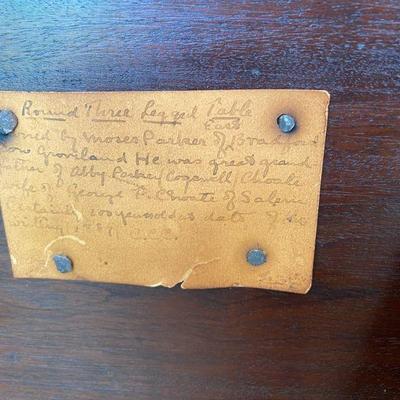 Round Three Legged Table
East
owned by Moses Parker of Bradford
now Groveland He was great grand
father of Abby Parker Cogswell Choate
wife of George F. Choate of Salem
Certainly 100 years old at date of
writing 1881